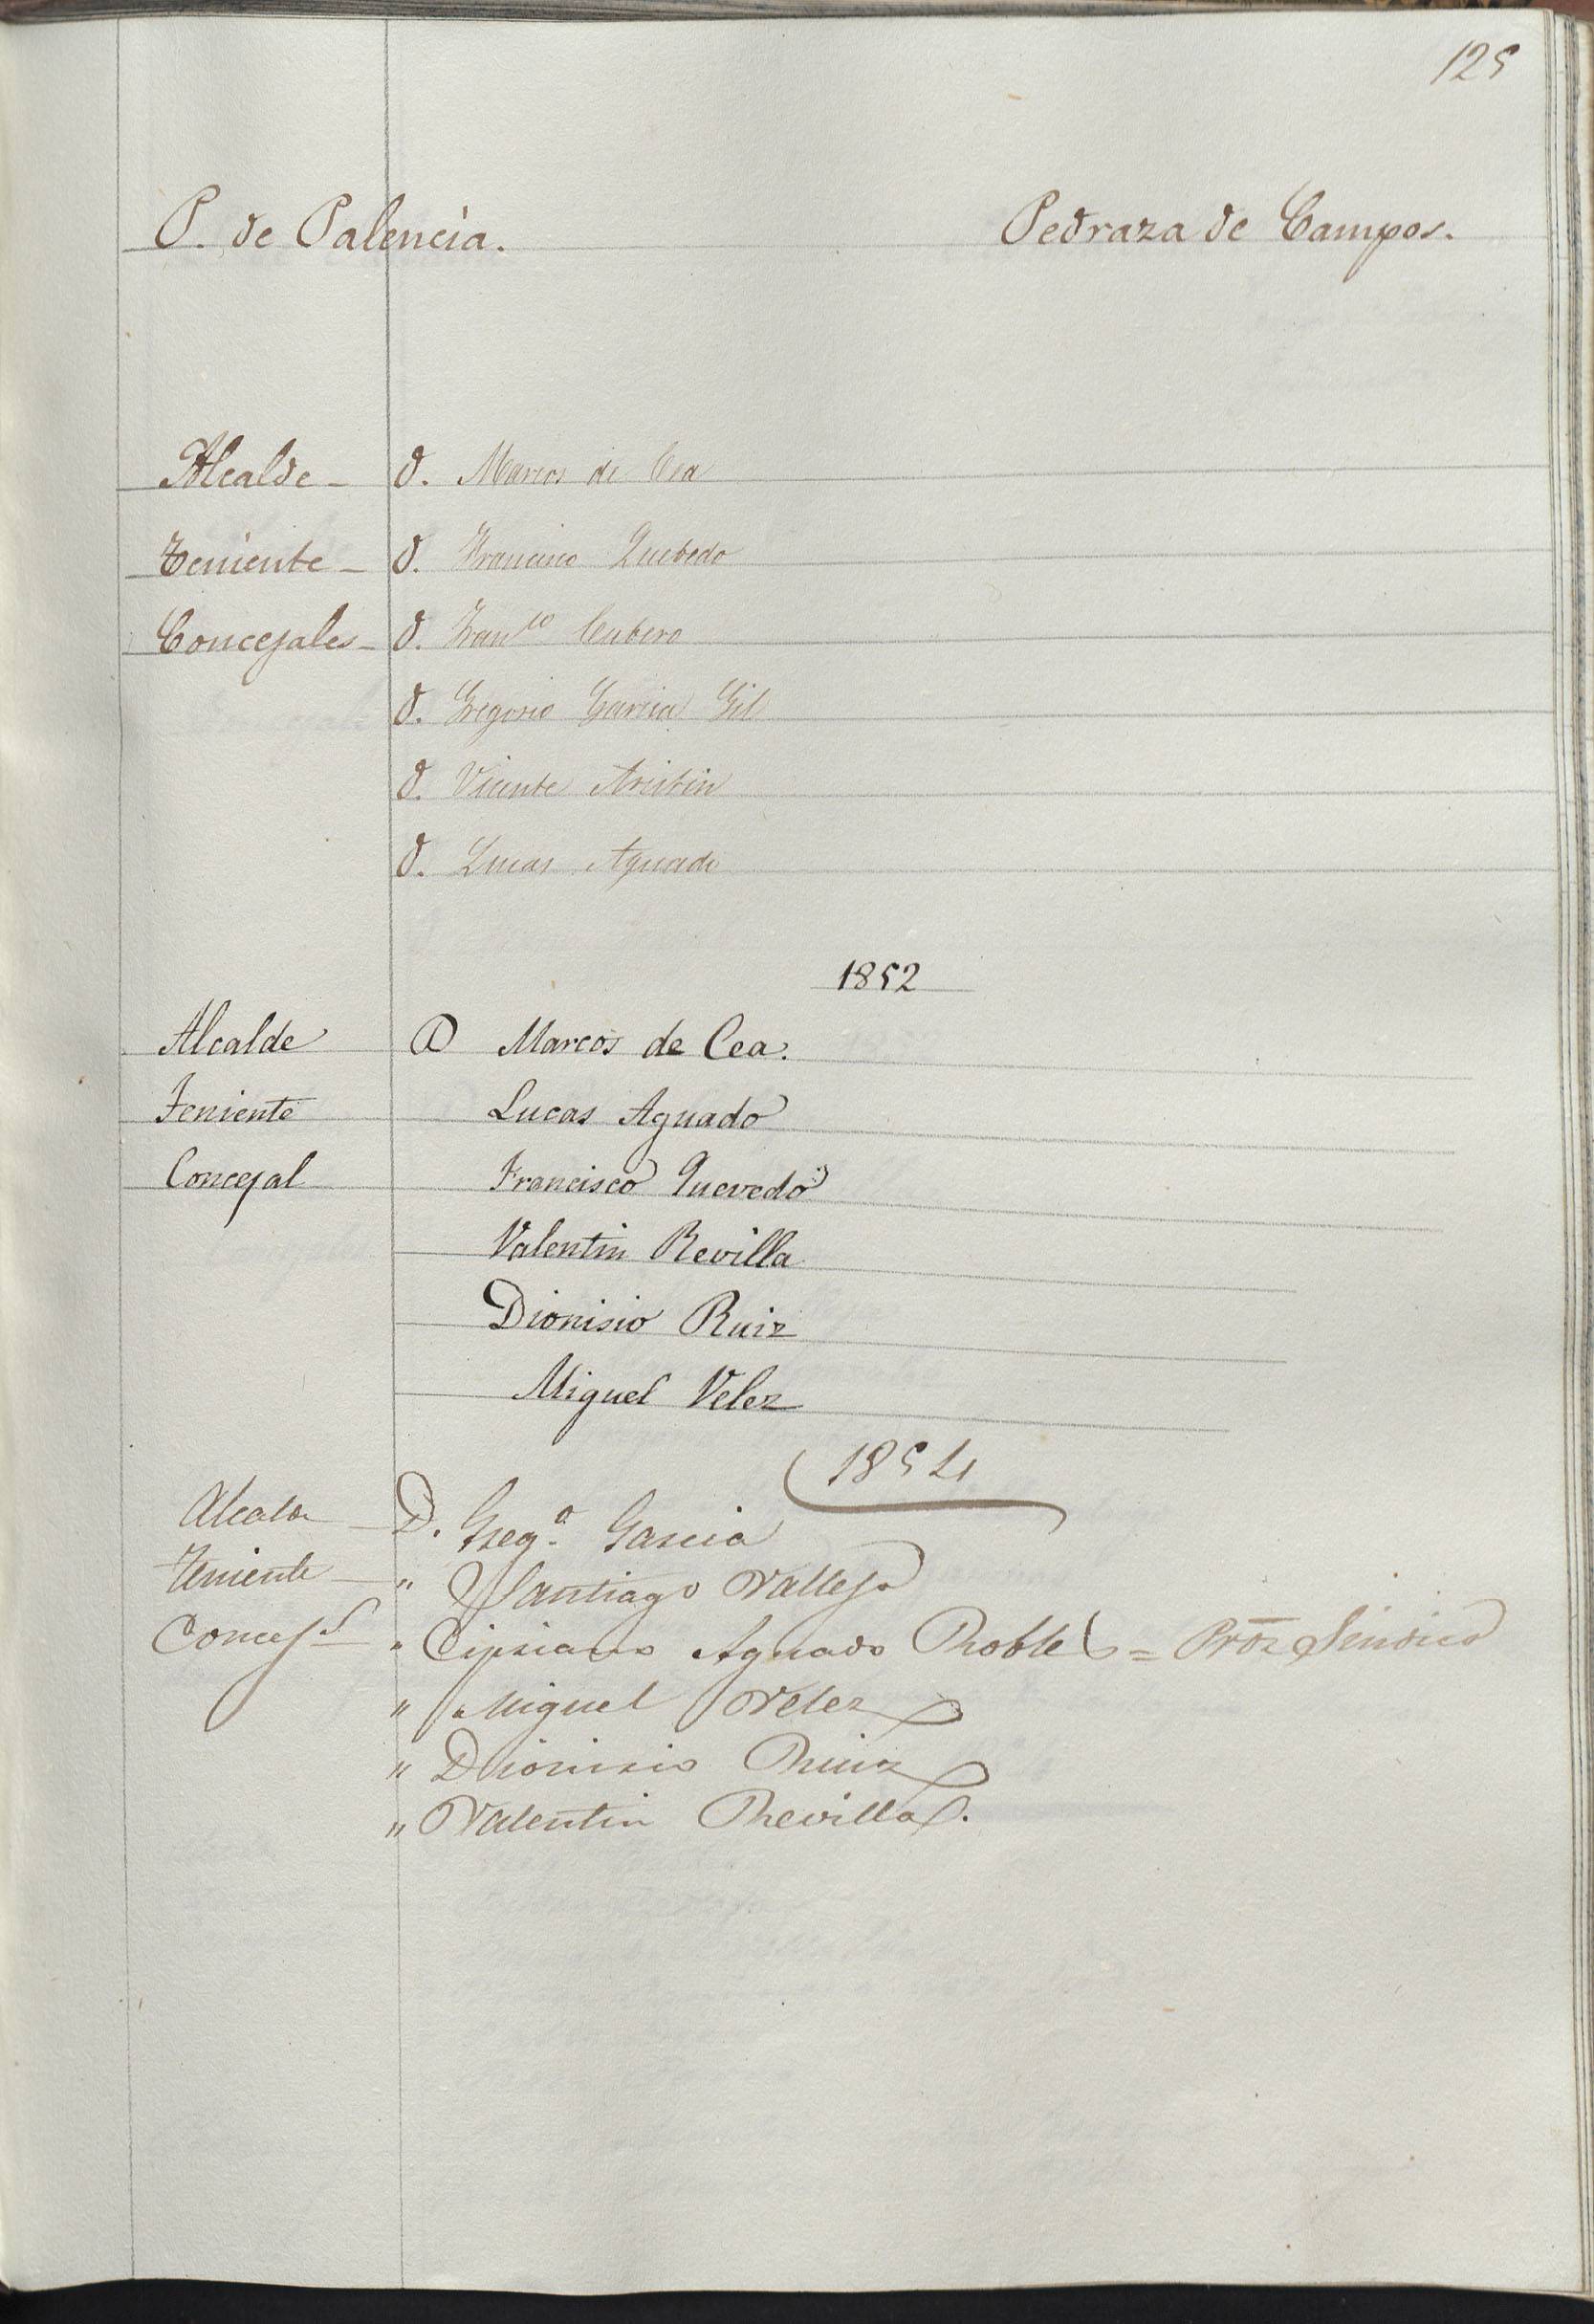 125
P. de Palencia. Pedraza de Campos.
Alcalde - D. Marcos de Cea
Teniente - D. Francisco Quebedo
Concejales - D. Fran.co Cubero
D. Gregorio Garcia Gil
D. Vicente
D. Lucas Aguado
1852
Alcalde D Marcos de Cea.
Teniente Lucas Aguado
Concejal Francisco Quevedo
Valentin Revilla
Dionisio Ruiz
Miguel Velez
1854
Alcalde D. Greg.o Garcia
Teniente " Santiago Vallejo
Concej.s " Cipriano Aguado Robles = Pror Sindico
" Miguel Velez
" Dionisio Ruiz
" Valentin Revilla.